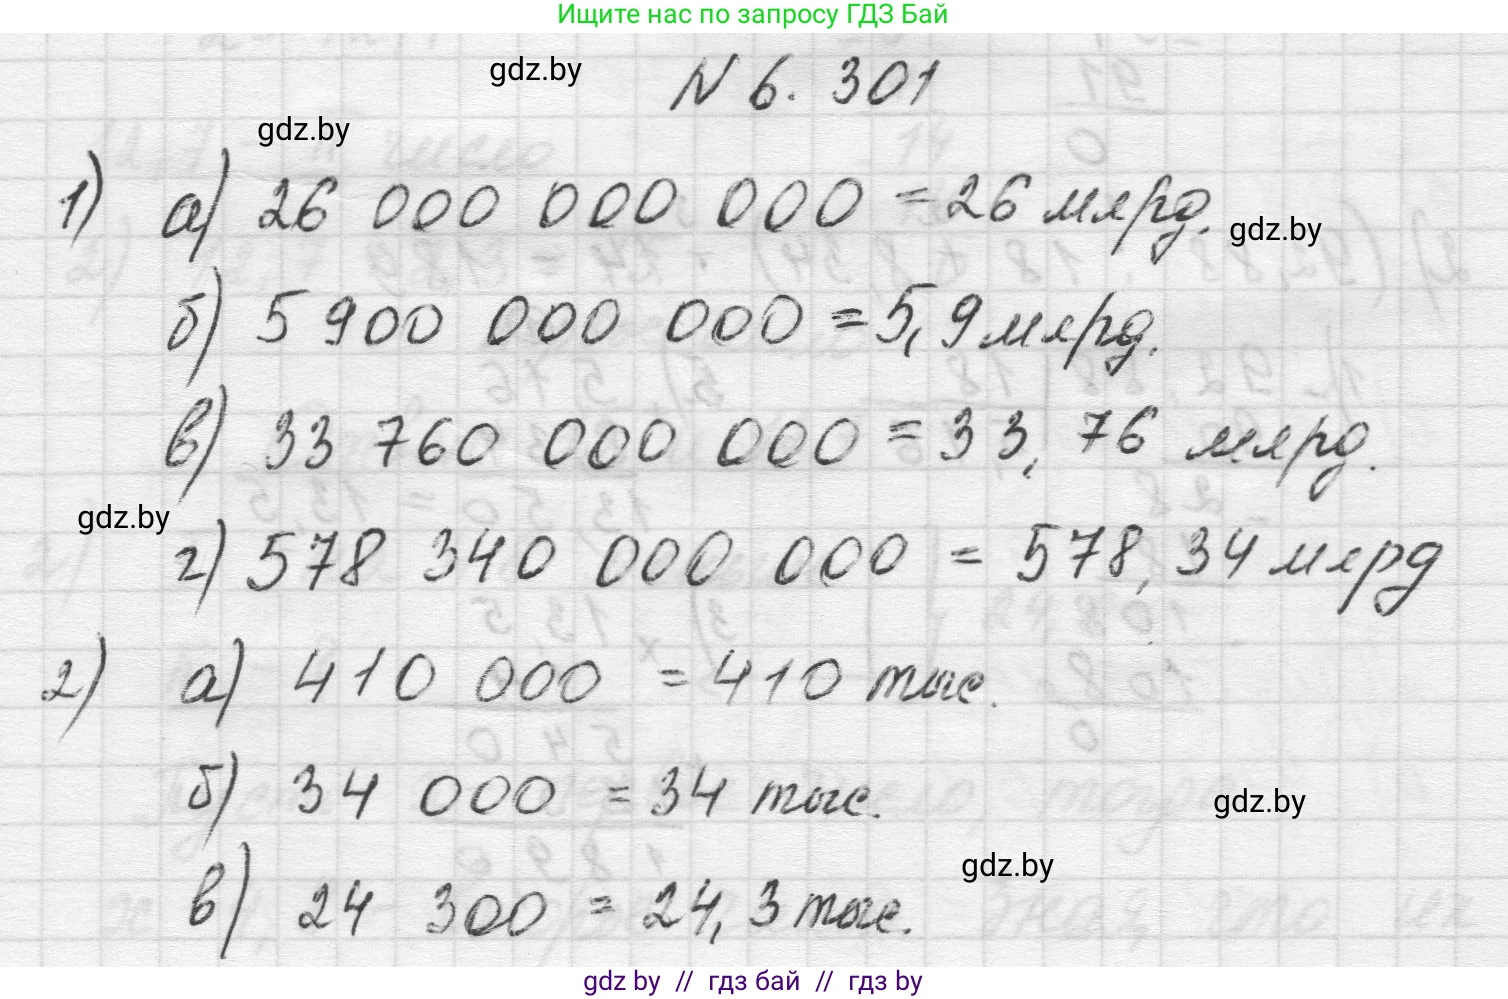 Ищите нас по запросу ГДЗ Бай
gdz.by
N 6. 301
gdz.by
1) а) 26 000 000 000 = 26 млрд.
gdz.by
б) 5 900 000 000 = 5,9 млрд.
в) 33 760 000 000 = 33,76 млрд.
gdz.by
г) 578 340 000 000 = 578,34 млрд
2) а) 410 000 = 410 тыс.
б) 34 000 = 34 тыс.
gdz.by
gdz.by
в) 24 300 = 24,3 тыс.
gdz by // гдз бай // гдз by